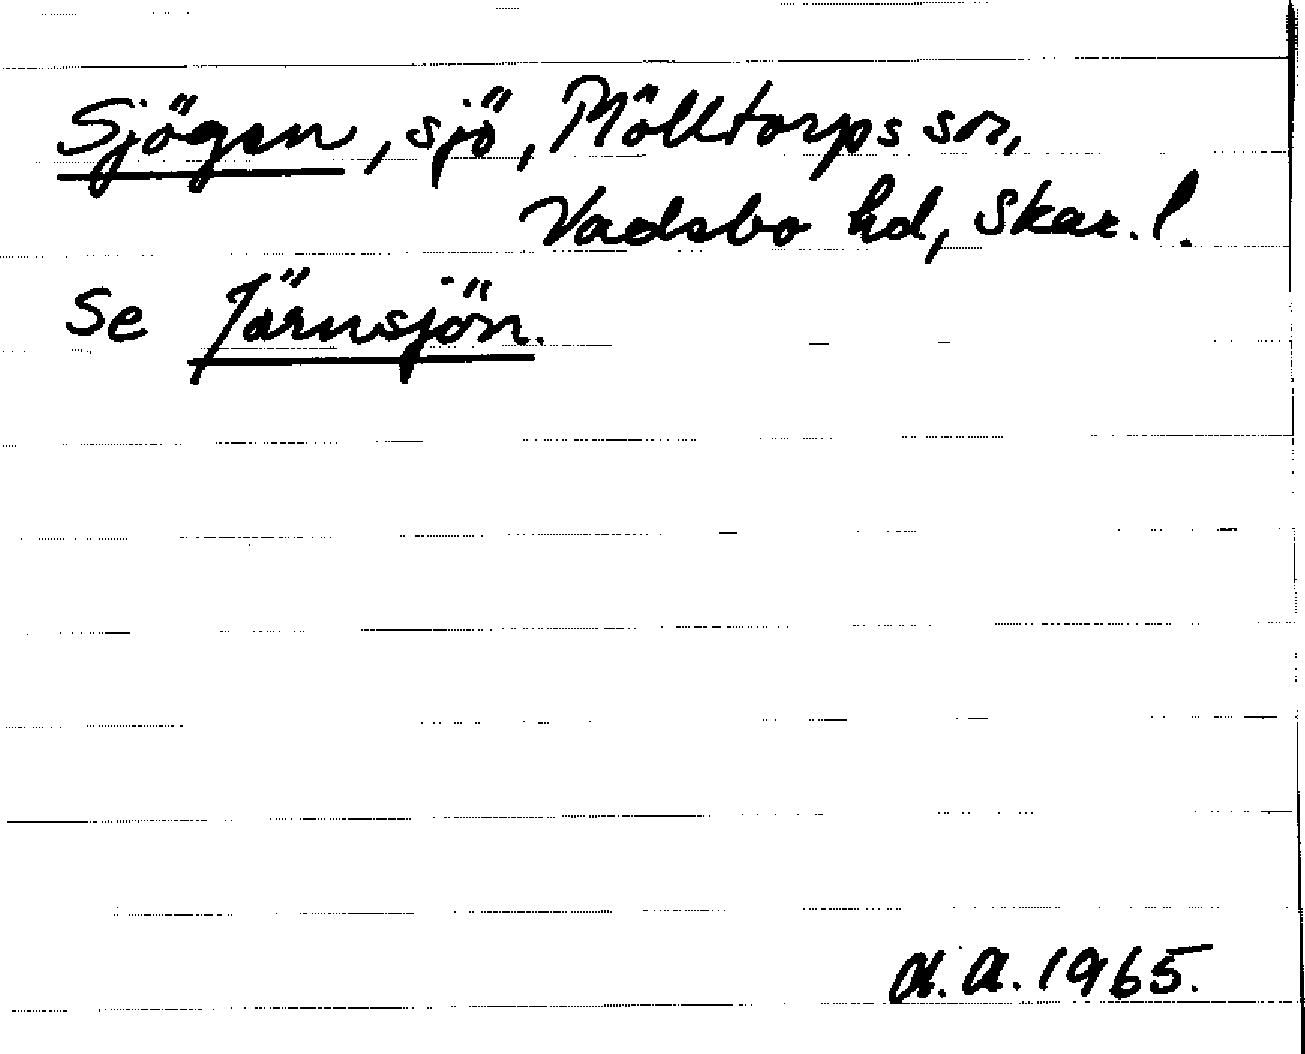 Sjögen, sjö, Mölltorps sn,
Vadsbo hd, Skar. l.
Se Järnsjön.
A. A. 1965.